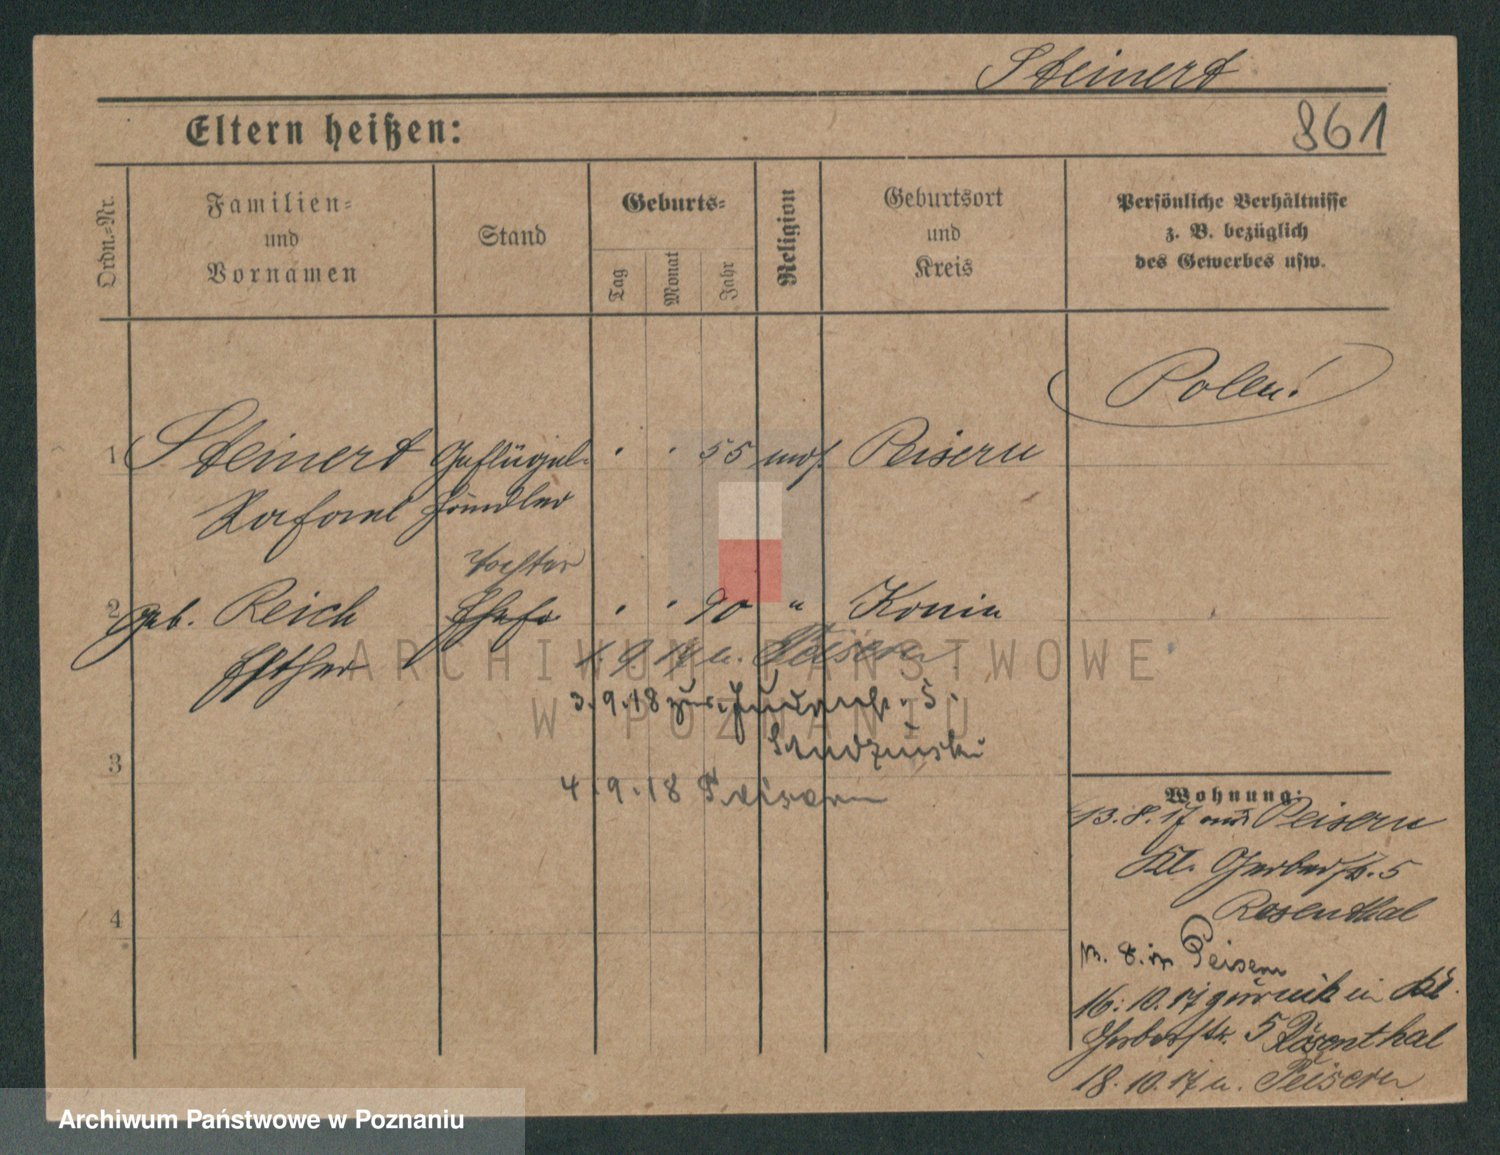 Steinert
861
Eltern heißen:
Ordn.-Nr.
Familien-
und
Vornamen
Stand
Geburts-
Tag
Monat
Jahr
Religion
Geburtsort
und
Kreis
Persönliche Verhältnisse
z. B. bezüglich
des Gewerbes usw.
Polen!
1 Steinert Geflügel- 55 mos. Peisern
händler
Tochter
2 geb. Reich Ehefr. 90 " Konin
Esther
1. 9. 17 n. Peisern
3. 9. 18 zur. 5.
4. 9. 18 Peisern
3
4
Wohnung:
13. 8. 17 aus Peisern
Kl. Gerberstr. 5
Rosenthal
Peisern
16. 10. 17 zurück in Kl.
Gerberstr. 5 Rosenthal
18. 10. 17 n. Peisern
ARCHIWUM PAŃSTWOWE
W POZNANIU
Archiwum Państwowe w Poznaniu